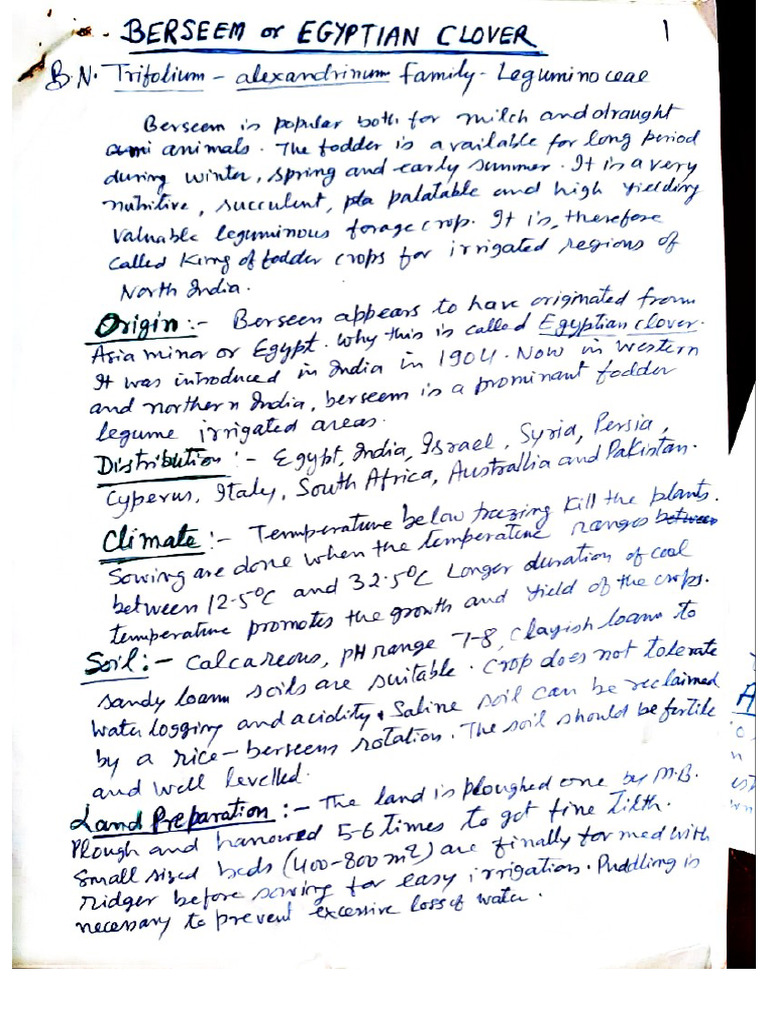 BERSEEM or EGYPTIAN CLOVER 1
B.N. Trifolium - alexandrinum Family - Leguminoceae
Berseem is popular both for milch and draught
animals. The fodder is available for long period
during winter, spring and early summer. It is a very
nutritive, succulent, palatable and high yielding
valuable leguminous forage crop. It is, therefore
called King of fodder crops for irrigated regions of
North India.
Origin :- Berseen appears to have originated from
Asia minor or Egypt. Why this is called Egyptian clover.
It was introduced in India in 1904. Now in western
and northern India, berseem is a prominant fodder
legume irrigated areas.
Distribution :- Egypt, India, Israel, Syria, Persia,
Cyperus, Italy, South Africa, Australlia and Pakistan.
Climate :- Temperature below freezing kill the plants.
Sowing are done when the temperature ranges between
between 12.5°C and 32.5°C Longer duration of cool
temperature promotes the growth and yield of the crops.
Soil :- Calcareous, pH range 7-8, Clayish loam to
sandy loam soils are suitable. Crop does not tolerate
water logging and acidity. Saline soil can be reclaimed
by a rice - berseem rotation. The soil should be fertile
and well levelled.
Land Preparation :- The land is ploughed one by M.B.
Plough and harrowed 5-6 times to get fine tilth.
Small sized beds (400-800 m²) are finally formed with
ridger before sowing for easy irrigation. Puddling is
necessary to prevent excessive loss of water.